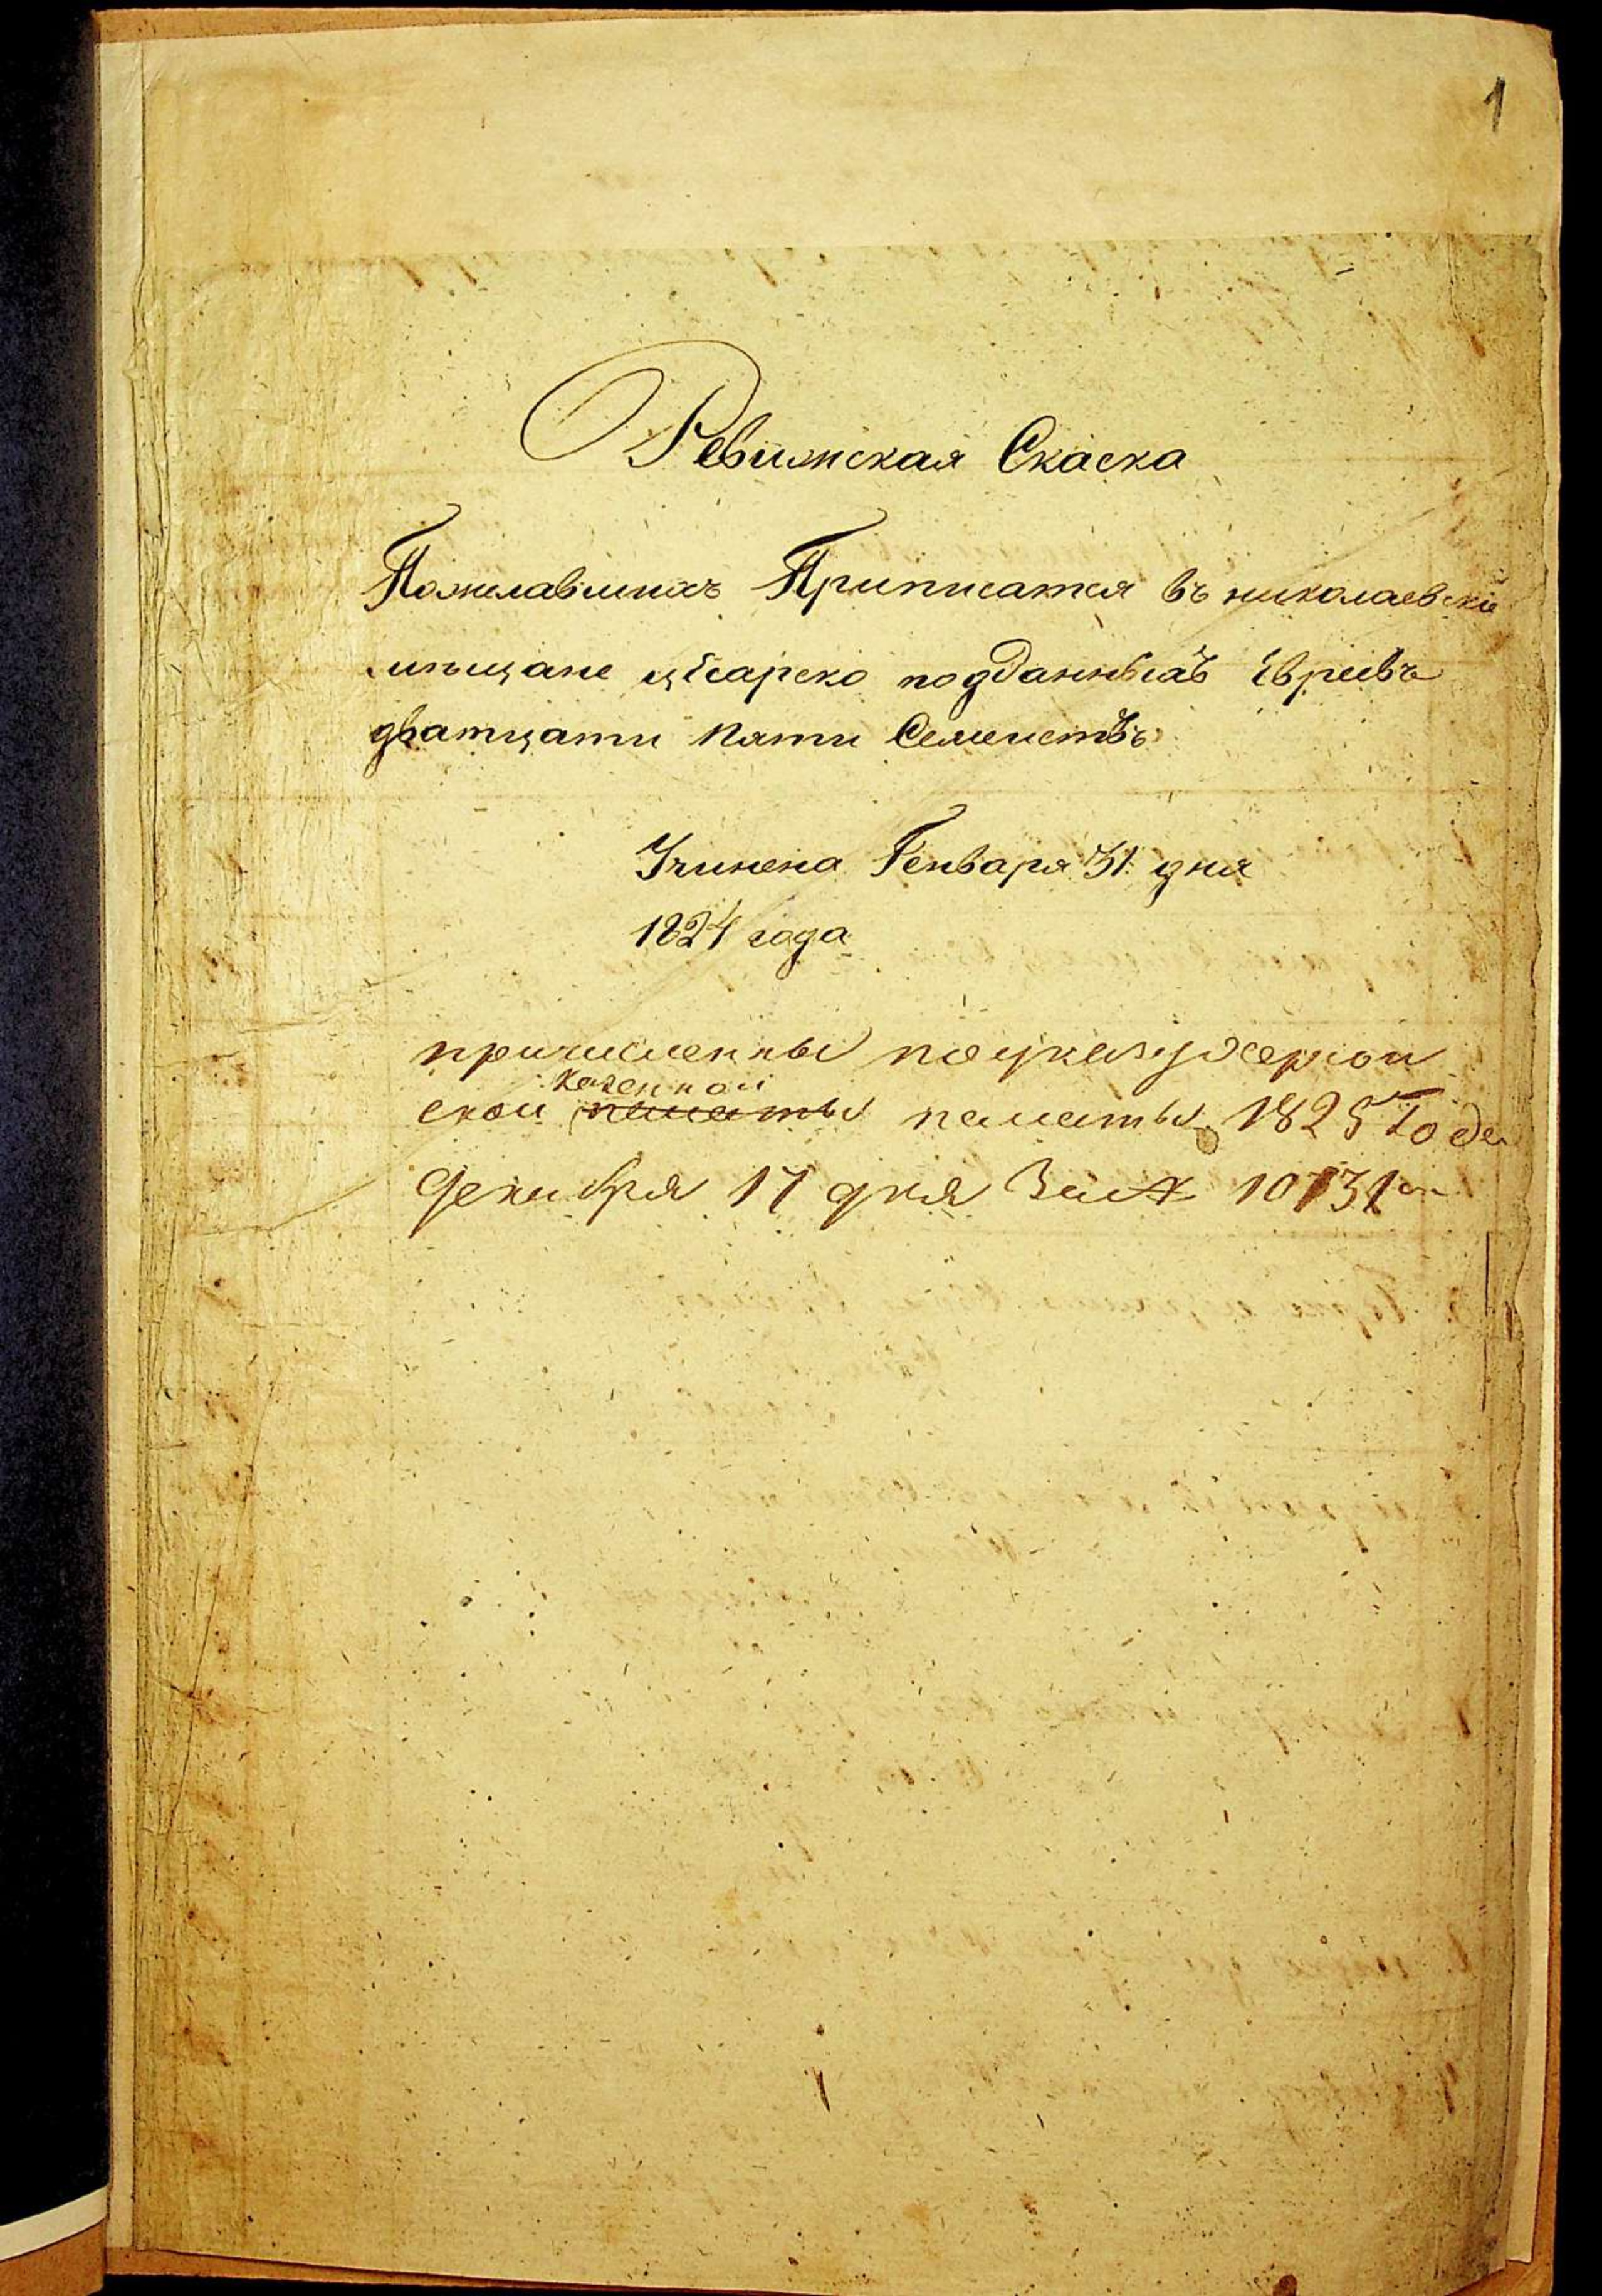 1
Ревижская Скаска
Пожелавшихъ Приписатся въ николаевскіе
мѣщане цесарско подданныхъ Евреевъ
дватцати пяти Семействъ
Учинена Генваря 31 дня
1824 года
причисленны по указу херсон
казенной
ской палаты палаты 1825 Года
Декабря 17 дня За №